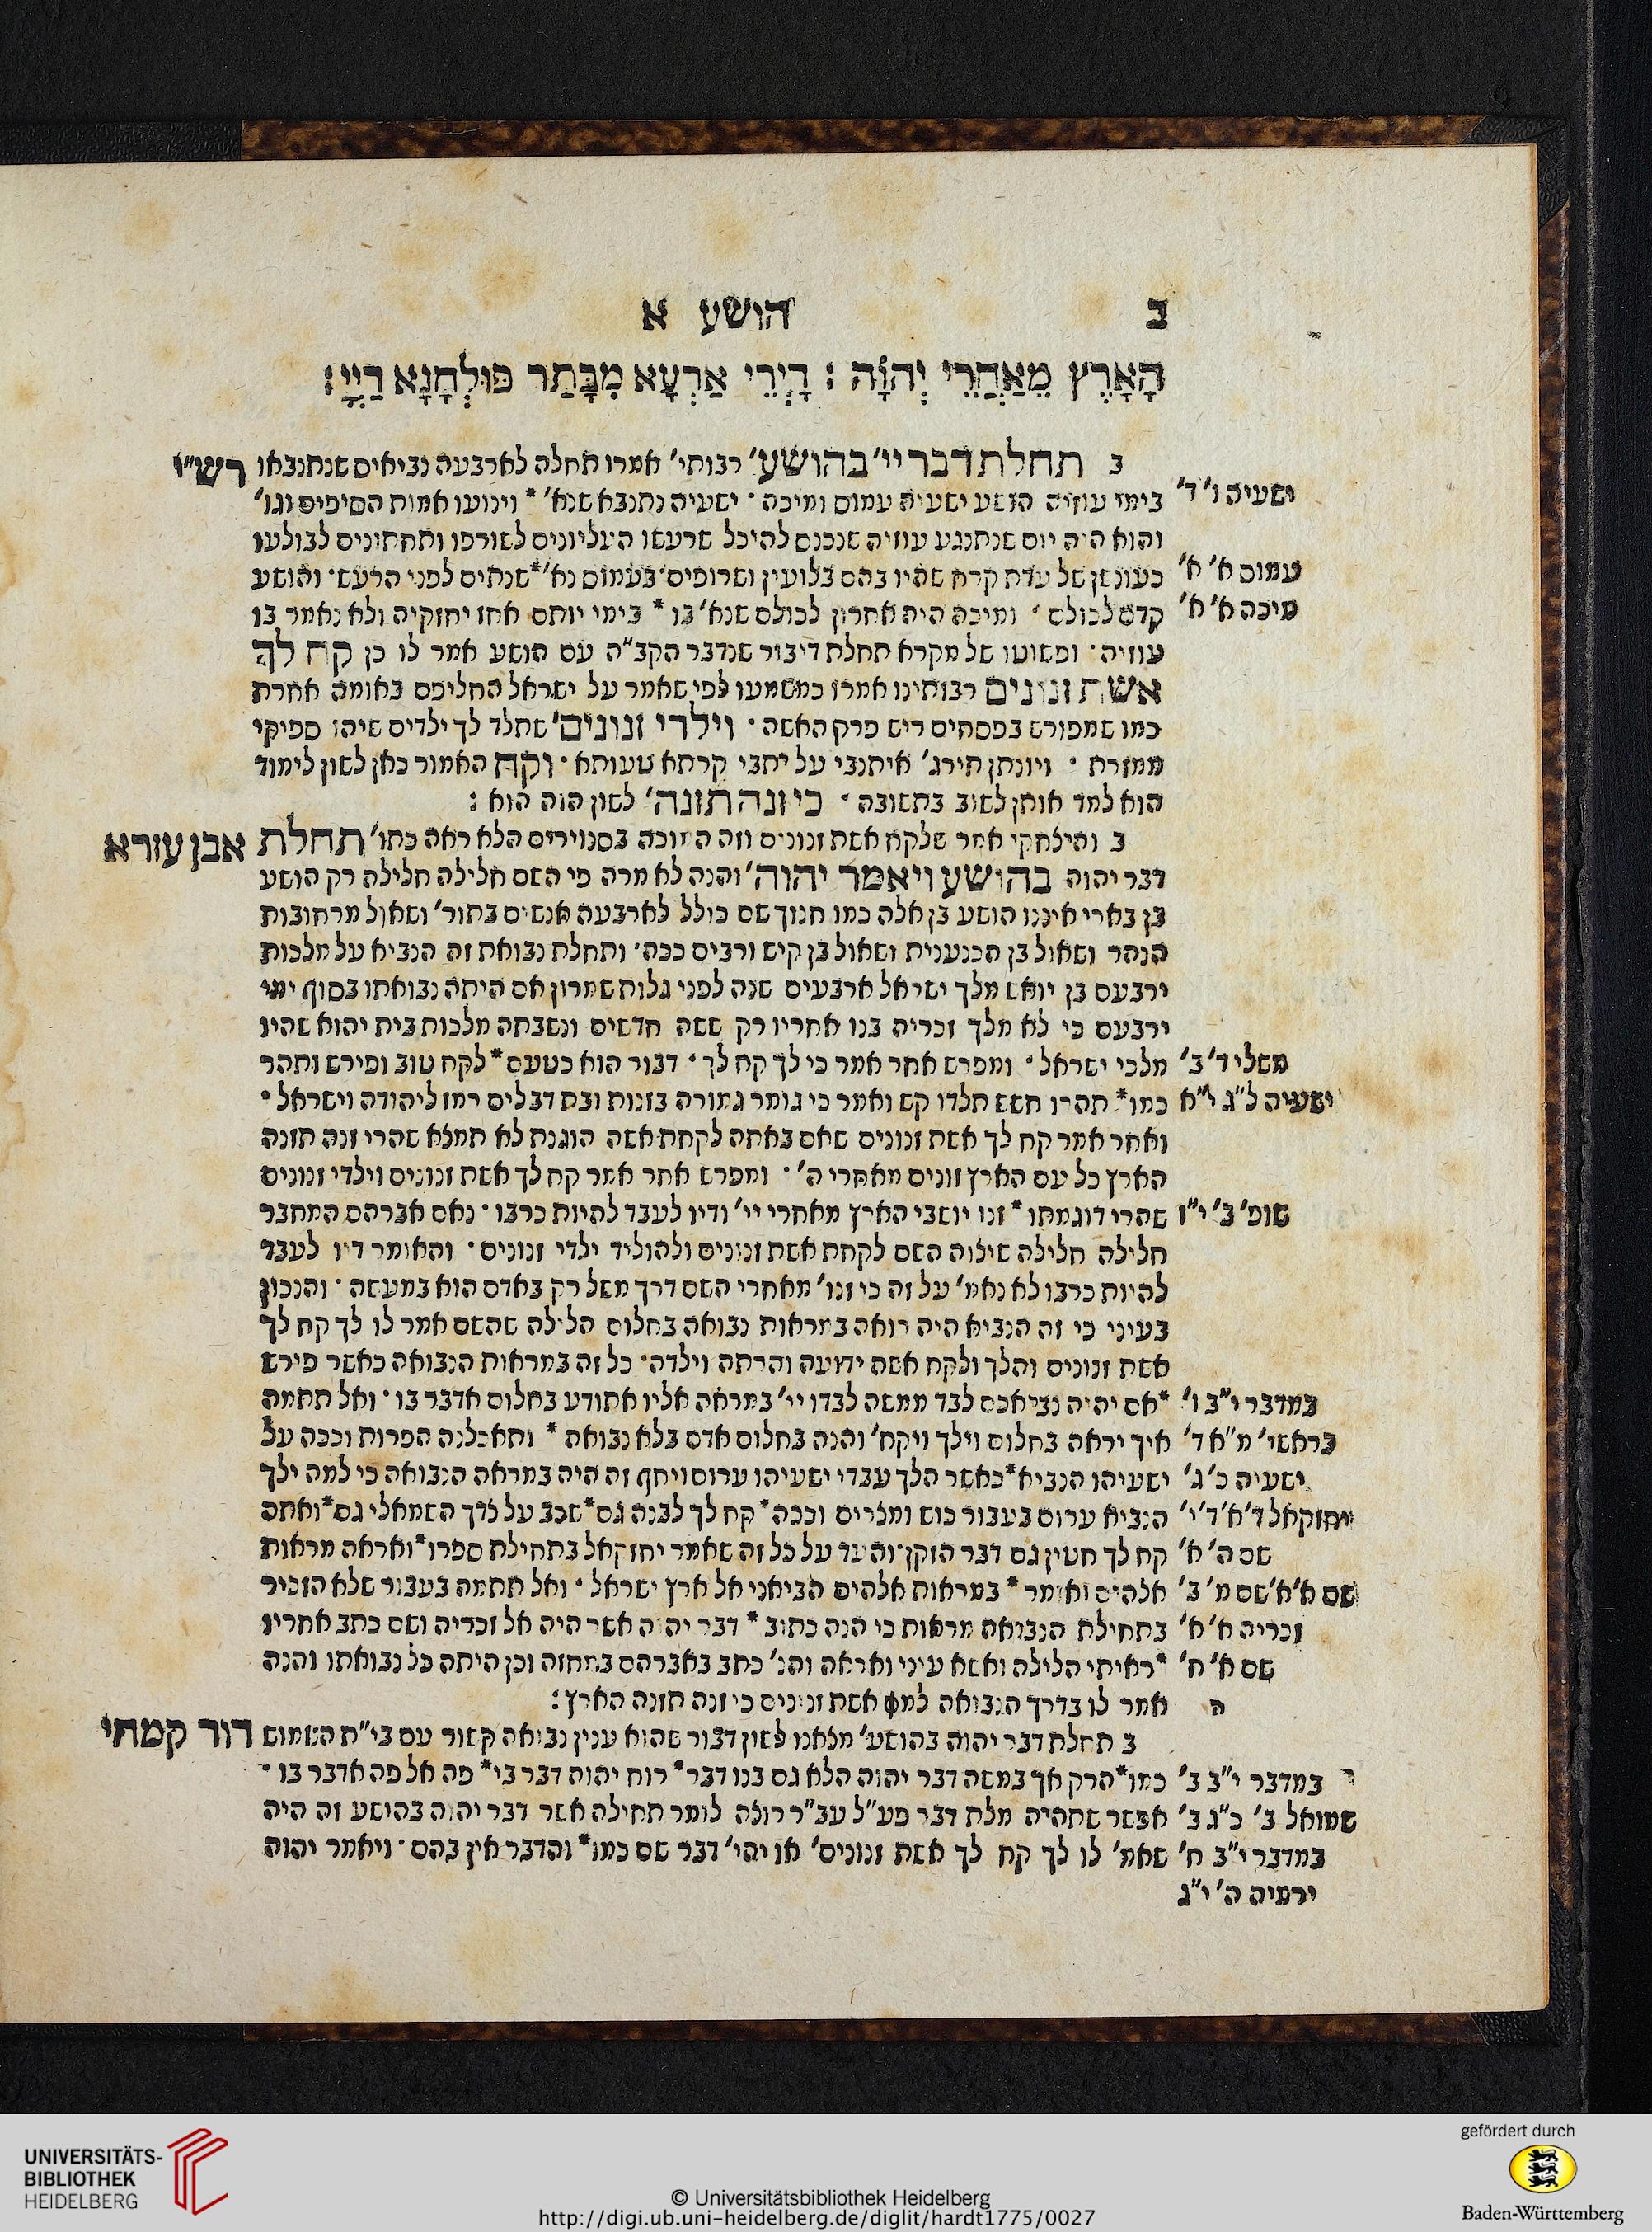 ב הושע א
הָאָרֶץ מֵאַחֲרֵי יְהוָֹה : דָיְרֵי אַרְעָא מִבָּתַר פּוּלְחָנָא דַיְיָ :
רש״י
ב תחלת דבר יי׳ בהושע׳ רבותי׳ אמרו תחלה לארבעה נביאים שנתנבאו
ישעיה ו׳ ד׳
בימי עוזיה הושע ישעיה עמוס ומיכה · ישעיה נתנבא שנא׳ * וינועו אמות הסיפים וגו׳
והוא היה יום שנתנגע עוזיה שנכנס להיכל שרעשו העליונים לשורפו ותחתונים לבולעו
עמוס א׳ א׳
כעונשן של עדת קרח שהיו בהם בלועין ושרופים · בעמוס נא׳ * שנתים לפני הרעש · והושע
מיכה א׳ א׳
קדם לכולם · ומיכה היה אחרון לכולם שנא׳ בו * בימי יותם אחז יחזקיה ולא נאמר בו
עוזיה · ופשוטו של מקרא תחלת דיבור שנדבר הקב״ה עם הושע אמר לו כן קח לך
אשת זנונים רבותינו אמרו כמשמעו לפי שאמר על ישראל החליפם באומה אחרת
כמו שמפורש בפסחים ריש פרק האשה · וילדי זנונים׳ שתלד לך ילדים שיהו ספיקי
ממזרת · ויונתן תירג׳ איתנבי על יתבי קרתא טעותא · וקח האמור כאן לשון לימוד
הוא למד אותן לשוב בתשובה · כי זנה תזנה׳ לשון הוה הוא :
אבן עזרא
ב והיצחקי אמר שלקח אשת זנונים וזה המוכה בסנוירים הלא ראה כתו׳ תחלת
דבר יהוה בהושע ויאמר יהוה׳ והנה לא מרה פי השם חלילה חלילה רק הושע
בן בארי איננו הושע בן אלה כמו חנוך שם כולל לארבעה אנשים בתור׳ ושאול מרחובות
הנהר ושאול בן הכנענית ושאול בן קיש ורבים ככה · ותחלת נבואת זה הנביא על מלכות
ירבעם בן יואש מלך ישראל ארבעים שנה לפני גלות שמרון אם היתה נבואתו בסוף ימי
ירבעם כי לא מלך זכריה בנו אחריו רק ששה חדשים ונשבתה מלכות בית יהוא שהיו
משלי ד׳ ב׳
מלכי ישראל · ומפרש אחר אמר כי לך קח לך · דבור הוא כטעם * לקח טוב ופירש ותהר
ישעיה ל״ג י״א
כמו * תהרו חשש תלדו קש ואמר כי גומר גמורה בזנות ובת דבלים רמז ליהודה וישראל ·
ואחר אמר קח לך אשת זנונים שאם באתה לקחת אשה הוגנת לא תמצא שהרי זנה תזנה
הארץ כל עם הארץ זונים מאחרי ה׳ · ומפרש אחר אמר קח לך אשת זנונים וילדי זנונים
שופ׳ ב׳ י״ז
שהרי דוגמתו * זנו יושבי הארץ מאחרי יי׳ ודיו לעבד להיות כרבו · נאם אברהם המחבר
חלילה חלילה שיצוה השם לקחת אשת זנונים ולהוליד ילדי זנונים · והאומר דיו לעבד
להיות כרבו לא נאמ׳ על זה כי זנו׳ מאחרי השם דרך משל רק באדם הוא במעשה · והנכון
בעיני כי זה הנביא היה רואה במראות נבואה בחלום הלילה שהשם אמר לו לך קח לך
אשת זנונים והלך ולקח אשה ידועה והרתה וילדה · כל זה במראות הנבואה כאשר פירש
במדבר י״ב ו׳
* אם יהיה נביאכם לבד ממשה לבדו יי׳ במראה אליו אתודע בחלום אדבר בו · ואל תתמה
בראשי׳ מ״א ד׳
איך יראה בחלום וילך ויקח׳ והנה בחלום אדם בלא נבואה * ותאכלנה הפרות וככה על
ישעיה כ׳ ג׳
ישעיהו הנביא * כאשר הלך עבדי ישעיהו ערום ויחף זה היה במראה הנבואה כי למה ילך
יחזקאל ד׳ א׳ ד׳ י׳
הנביא ערום בעבור כוש ומצרים וככה * קח לך לבנה גם * שכב על צדך השמאלי גם * ואתה
שם ה׳ א׳
קח לך חטין גם דבר הזקן · והעד על כל זה שאמר יחזקאל בתחילת ספרו * ואראה מראות
שם א׳ א׳ שם מ׳ ב׳
אלהים ואומר * במראות אלהים הביאני אל ארץ ישראל · ואל תתמה בעבור שלא הזכיר
זכריה א׳ א׳
בתחילת הנבואה מראות כי הנה כתוב * דבר יהוה אשר היה אל זכריה ושם כתב אחריו
שם א׳ ח׳
* ראיתי הלילה ואשא עיני ואראה והנ׳ כתב באברהם במחזה וכן היתה כל נבואתו והנה
ה אמר לו בדרך הנבואה אשת זנונים כי זנה תזנה הארץ :
דוד קמחי
ב תחלת דבר יהוה בהושע׳ מצאנו לשון דבור שהוא ענין נבואה קשור עם בי״ת השמוש
במדבר י״ב ב׳
כמו * הרק אך במשה דבר יהוה הלא גם בנו דבר * רוח יהוה דבר בי * פה אל פה אדבר בו ·
שמואל ב׳ כ״ג ב׳
אפשר שתהיה מלת דבר פע״ל עב״ר רוצה לומר תחילה אשר דבר יהוה בהושע זה היה
במדבר י״ב ח׳
שאמ׳ לו לך קח לך אשת זנונים׳ או יהי׳ דבר שם כמו * והדבר אין בהם · ויאמר יהוה
ירמיה ה׳ י״ג
UNIVERSITÄTS-
BIBLIOTHEK
HEIDELBERG
© Universitätsbibliothek Heidelberg
http://digi.ub.uni-heidelberg.de/diglit/hardt1775/0027
gefördert durch
Baden-Württemberg